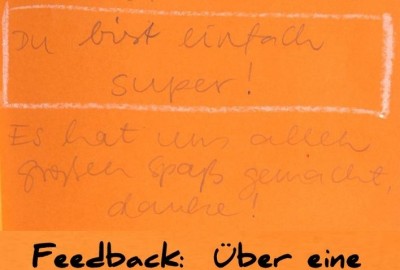 Du bist einfach
super!
Es hat uns allen
großen Spaß gemacht,
danke!
Feedback: Über eine